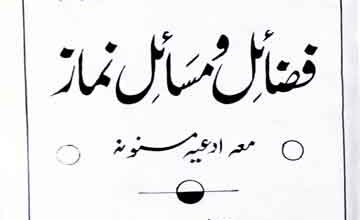 فضائل و مسائل نماز
معہ ادعیہ مسنونہ